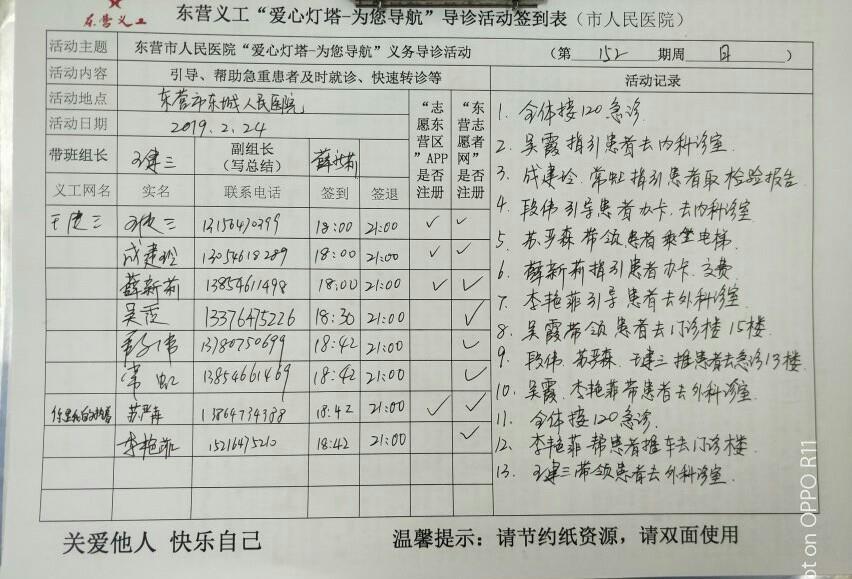 东营义工
东营义工“爱心灯塔-为您导航”导诊活动签到表（市人民医院）
活动主题 东营市人民医院“爱心灯塔-为您导航”义务导诊活动 （第 152 期周 日 ）
活动内容 引导、帮助急重患者及时就诊、快速转诊等 活动记录
活动地点 东营市东城人民医院
活动日期 2019.2.24
“志愿东营区”APP是否注册
“东营志愿者网”是否注册
带班组长 王建三 副组长（写总结） 薛新莉
义工网名 实名 联系电话 签到 签退
王建三 王建三 13156470399 18:00 21:00 ✓ ✓
成建玲 13054618289 18:00 21:00 ✓ ✓
薛新莉 13854611498 18:00 21:00 ✓ ✓
吴霞 13376475226 18:30 21:00 ✓
段伟 13780750699 18:42 21:00 ✓
常虹 13854661469 18:42 21:00 ✓
苏严森 13864734388 18:42 21:00 ✓ ✓
李艳菲 15216475210 18:42 21:00 ✓
1. 全体接120急诊
2. 吴霞指引患者去内科诊室.
3. 成建玲.常虹指引患者取检验报告
4. 段伟引导患者办卡.去内科诊室
5. 苏严森带领患者乘坐电梯.
6. 薛新莉指引患者办卡.交费
7. 李艳菲引导患者去外科诊室.
8. 吴霞带领患者去门诊楼15楼.
9. 段伟.苏严森.王建三推患者去急诊13楼.
10. 吴霞.李艳菲带患者去外科诊室.
11. 全体接120急诊.
12. 李艳菲帮患者推车去门诊楼.
13. 王建三带领患者去外科诊室.
关爱他人 快乐自己 温馨提示：请节约纸资源，请双面使用
ot on OPPO R11